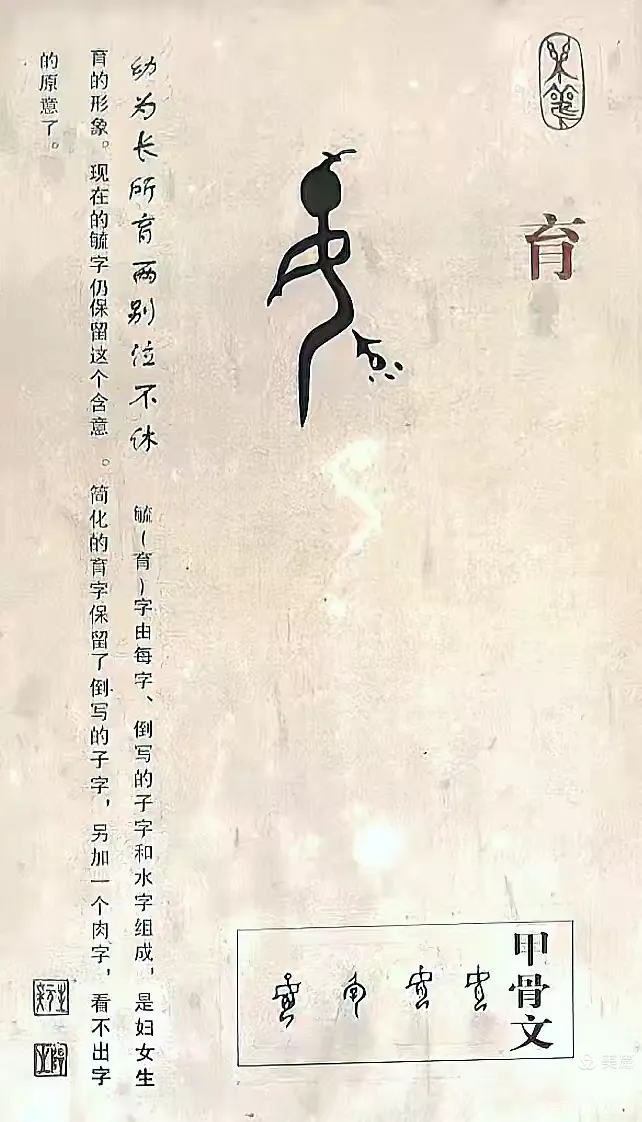 育
幼为长所育两别位不休
毓(育)字由每字、倒写的子字和水字组成,是妇女生
育的形象。现在的毓字仍保留这个含意。简化的育字保留了倒写的子字,另加一个肉字,看不出字
的原意了。
甲骨文